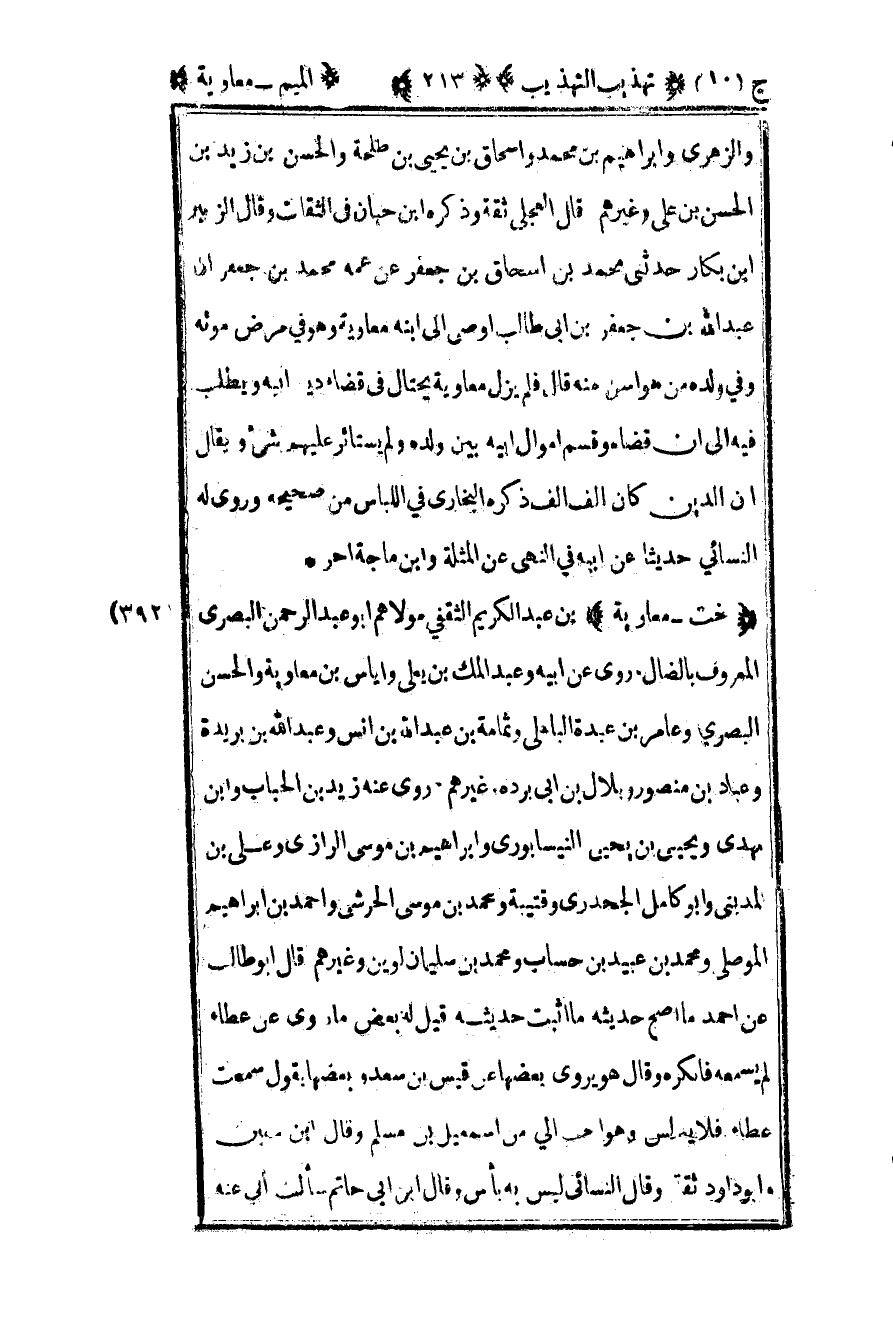 ج (١٠) ﴿ تهذيب التهذيب ﴾ ﴿ ٢١٣ ﴾ ﴿ الميم ـ معاوية ﴾
والزهرى وابراهيم بن محمد واسحاق بن يحيى بن طلحة والحسن بن زيد بن
الحسن بن على وغيرهم قال العجلى ثقة وذكره ابن حبان فى الثقات وقال الزبير
ابن بكار حدثنى محمد بن اسحاق بن جعفر عن عمه محمد بن جعفر ان
عبدالله بن جعفر بن ابى طالب اوصى الى ابنه معاوية وهو في مرض موته
وفي ولده من هو اسن منه قال فلم يزل معاوية يحتال فى قضاء دين ابيه ويطلب
فيه الى ان قضاه وقسم اموال ابيه بين ولده ولم يستاثر عليهم بشئ ويقال
ان الدين كان الف الف ذكره البخارى في اللباس من صحيحه وروى له
النسائي حديثا عن ابيه في النهى عن المثلة وابن ماجة آخر •
﴿ خت ـ معاوية ﴾ بن عبد الكريم الثقفي مولاهم ابو عبد الرحمن البصرى (٣٩٢)
المعروف بالضال. روى عن ابيه وعبد الملك بن يعلى واياس بن معاوية والحسن
البصري وعامر بن عبدة الباهلى وثمامة بن عبدالله بن انس وعبدالله بن بريدة
وعباد بن منصور وبلال بن ابى برده. غيرهم. روى عنه زيد بن الحباب وابن
مهدى ويحيى بن يحيى النيسابورى وابراهيم بن موسى الرازى وعلى بن
المدينى وابو كامل الجحدرى وقتيبة ومحمد بن موسى الحرشى واحمد بن ابراهيم
الموصلى ومحمد بن عبيد بن حساب ومحمد بن سليمان لوين وغيرهم قال ابو طالب
عن احمد ما اصح حديثه ما اثبت حديثه قيل له بعض ما روى عن عطاء
لم يسمعه فانكره وقال هو يروى بعضها عن قيس بن سعد و بعضها يقول سمعت
عطاء فلا يدلس وهو احب الي من اسمعيل بن مسلم وقال ابن معين
وابو داود ثقة وقال النسائى ليس به بأس وقال ابن ابي حاتم سألت أبي عنه